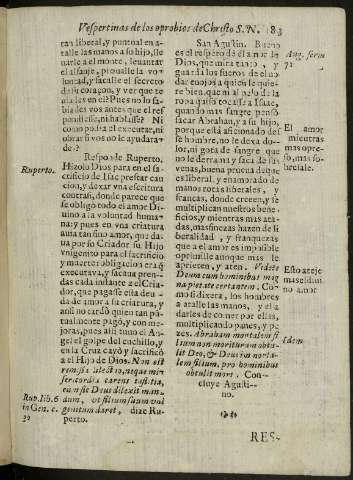 Vespertinas de los oprobios de Christo S. N. 83
tan liberal, y puntual en a-
talle las manos a su hijo, lle
uarle a el monte, leuantar
el alfanje, proualle la vo-
luntad, y facalle el secreto
de su coraçon, y ver que te
nia ley en el? Pues no lo sa-
bia des vos antes que el res-
pondiesse, ni hablasse? Ni
como podia el executar, ni
obrar si vos no le ayudara-
de.?
Responde Ruperto.
Hizolo Dios para en el sa-
crificio de Isac prestar cau
cion, y dexar vna escritura
contra si, donde parece que
se obligó todo el amor Di-
uino a la voluntad huma-
na: y pues en vna criatura
auia tan fino amor, que da-
ua por su Criador su Hijo
vnigenito para el sacrificio
y muerte: obligacion era q̃
executaua, y sacaua pren-
das cada instante a el Cria-
dor, que pagasse esta deu-
da de amor a su criatura, y
ansi no cardò quien tan pũ
tualmente pagó, y con me-
joras, pues alli tuuo el An-
gel el golpe del cuchillo, y
en la Cruz cayó y sacrificó
a el Hijo de Dios. Non est
remissa iniectio, neque mi-
sericordia carent iustitia,
cum sic Deus dilexit mun-
dum, vt filium suum vni
genitum daret, dize Ru-
perto.
Ruperto.
Rup. lib. 6
in Gen. c.
32
San Agustin. Bueno
es el respecto de el amor de
Dios, que mira tanto, y
guarda los fueros de el no-
dar enojos a quien le quie-
re bien, que ni al pelo de la
ropa quiso tocasse a Isaac,
quando mas sangre pensó
sacar Abrahan, y a su hijo,
porque està aficionado del
se hombre, no le dexa do-
lor, ni gota de sangre que
no le derrama y saca de sus
venas, buena prueua de que
es liberal, y enamorado de
manos rotas liberales, y
francas, donde creen, y se
multiplican nuestros bene-
ficios, y mientras mas ata-
das, mas finezas hazen de li
beralidad, y franquezas
que a el amor es impossible
oprimille aunque mas le
aprieten, y aten. Vedete
Deum cum hominibus mag
na pietate certantem. Co-
mo si dixera, los hombres
a atalle las manos, y el a
darles de comer por ellas,
multiplicando panes, y pe
zes. Abraham mortalem fi
lium non moriturum obtu-
lit Deo, & Deus immorta-
lem filium, pro hominibus
obtulit mori. Con-
cluye Agusti-
no.
Aug. serm
71
El amor
mientras
mas opre-
so, mas fo-
berale.
Est o ateje
mas eldiui
no amor
Idem
RES-